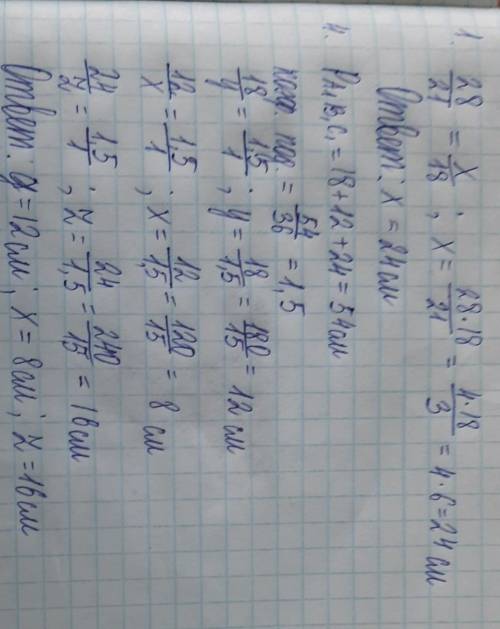 1. 28/21 = x/18 ; x = 28·18/21 = 4·18/3 = 4·6 = 24 см
Ответ: x = 24 см
4. PA1B1C1 = 18+12+24 = 54 см
коэф. под. = 54/36 = 1,5
18/y = 1,5/1 ; y = 18/1,5 = 180/15 = 12 см
12/x = 1,5/1 ; x = 12/1,5 = 120/15 = 8 см
24/z = 1,5/1 ; z = 24/1,5 = 240/15 = 16 см
Ответ: y = 12 см ; x = 8 см ; z = 16 см